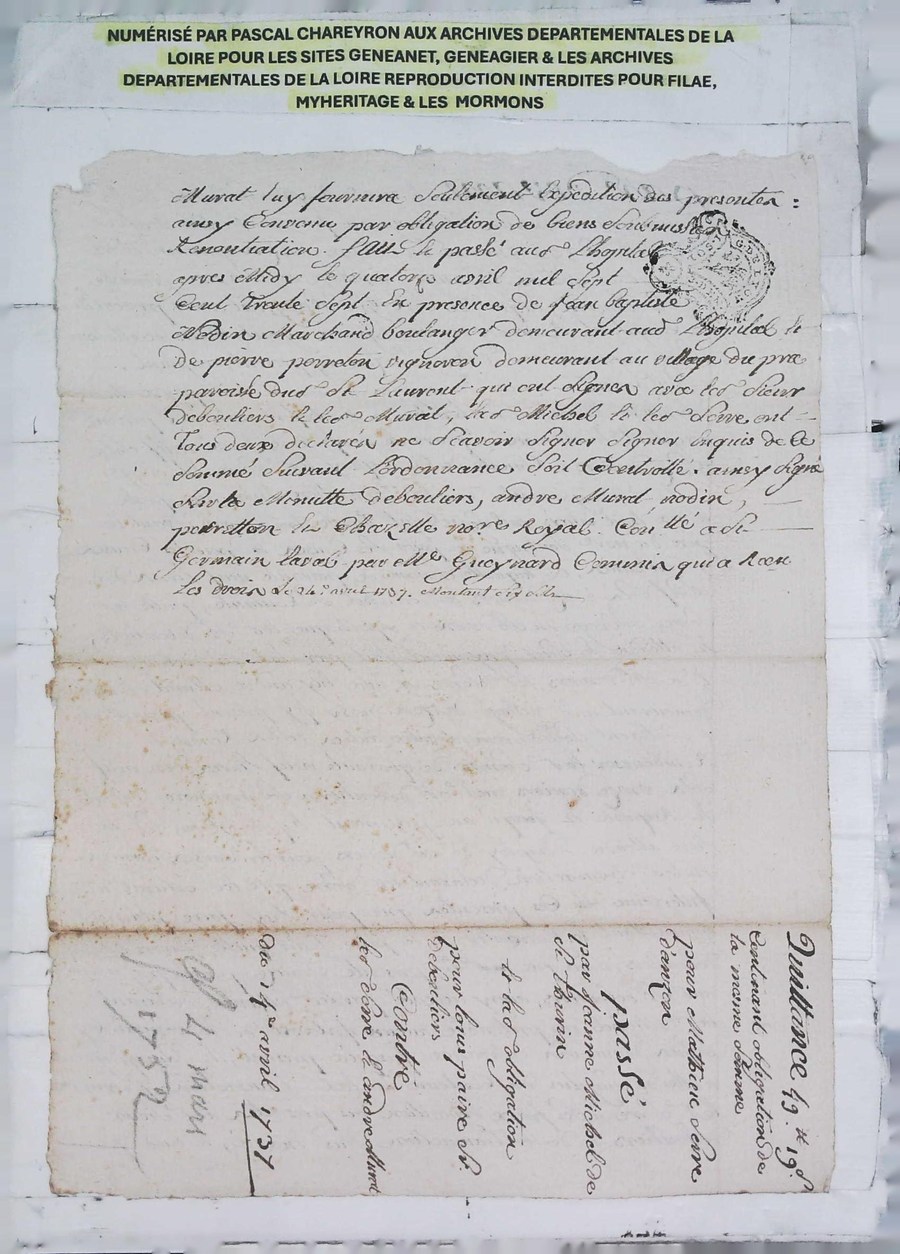 NUMÉRISÉ PAR PASCAL CHAREYRON AUX ARCHIVES DEPARTEMENTALES DE LA
LOIRE POUR LES SITES GENEANET, GENEAGIER & LES ARCHIVES
DEPARTEMENTALES DE LA LOIRE REPRODUCTION INTERDITES POUR FILAE,
MYHERITAGE & LES MORMONS
Murat luy fournira seulement Expedition des presentes :
ainsy Convenu par obligation de biens soubmission
Renontiation. fait et passé aud. Lhopital
apres Midy le quatorze avril mil sept
Cent trente sept En presence de Jean baptiste
Nodin Marchand boulanger demeurant aud. Lhopital et
de pierre perreton vigneron demeurant au village du pra
paroisse dud. St Laurent qui ont signés avec les sieur
debouliers et led. Murat, lad. Michel et led. Serre ont
tous deux declarés ne sçavoir signer signer inquis de Ce
sommé suivant Lordonnance soit Controllé. ainsy signé
sur la Minutte debouliers, andre Murat nodin,
perretton Et Chazelle nore Royal. Conllé a St
Germain laval par Me Gueynard Commis qui a Receu
Les droits Le 24e avril 1737.
Quittance 19.tt 19s
Contenant obligation de
la meme somme
pour Mathieu Serre
d'auzon
passé
par Jeanne Michel de
St Thurin
et lad. obligation
pour Louis paire Sr.
debouliers
Contre
led. Serre et andre Murat
du 14e avril 1737
4 mars
1752